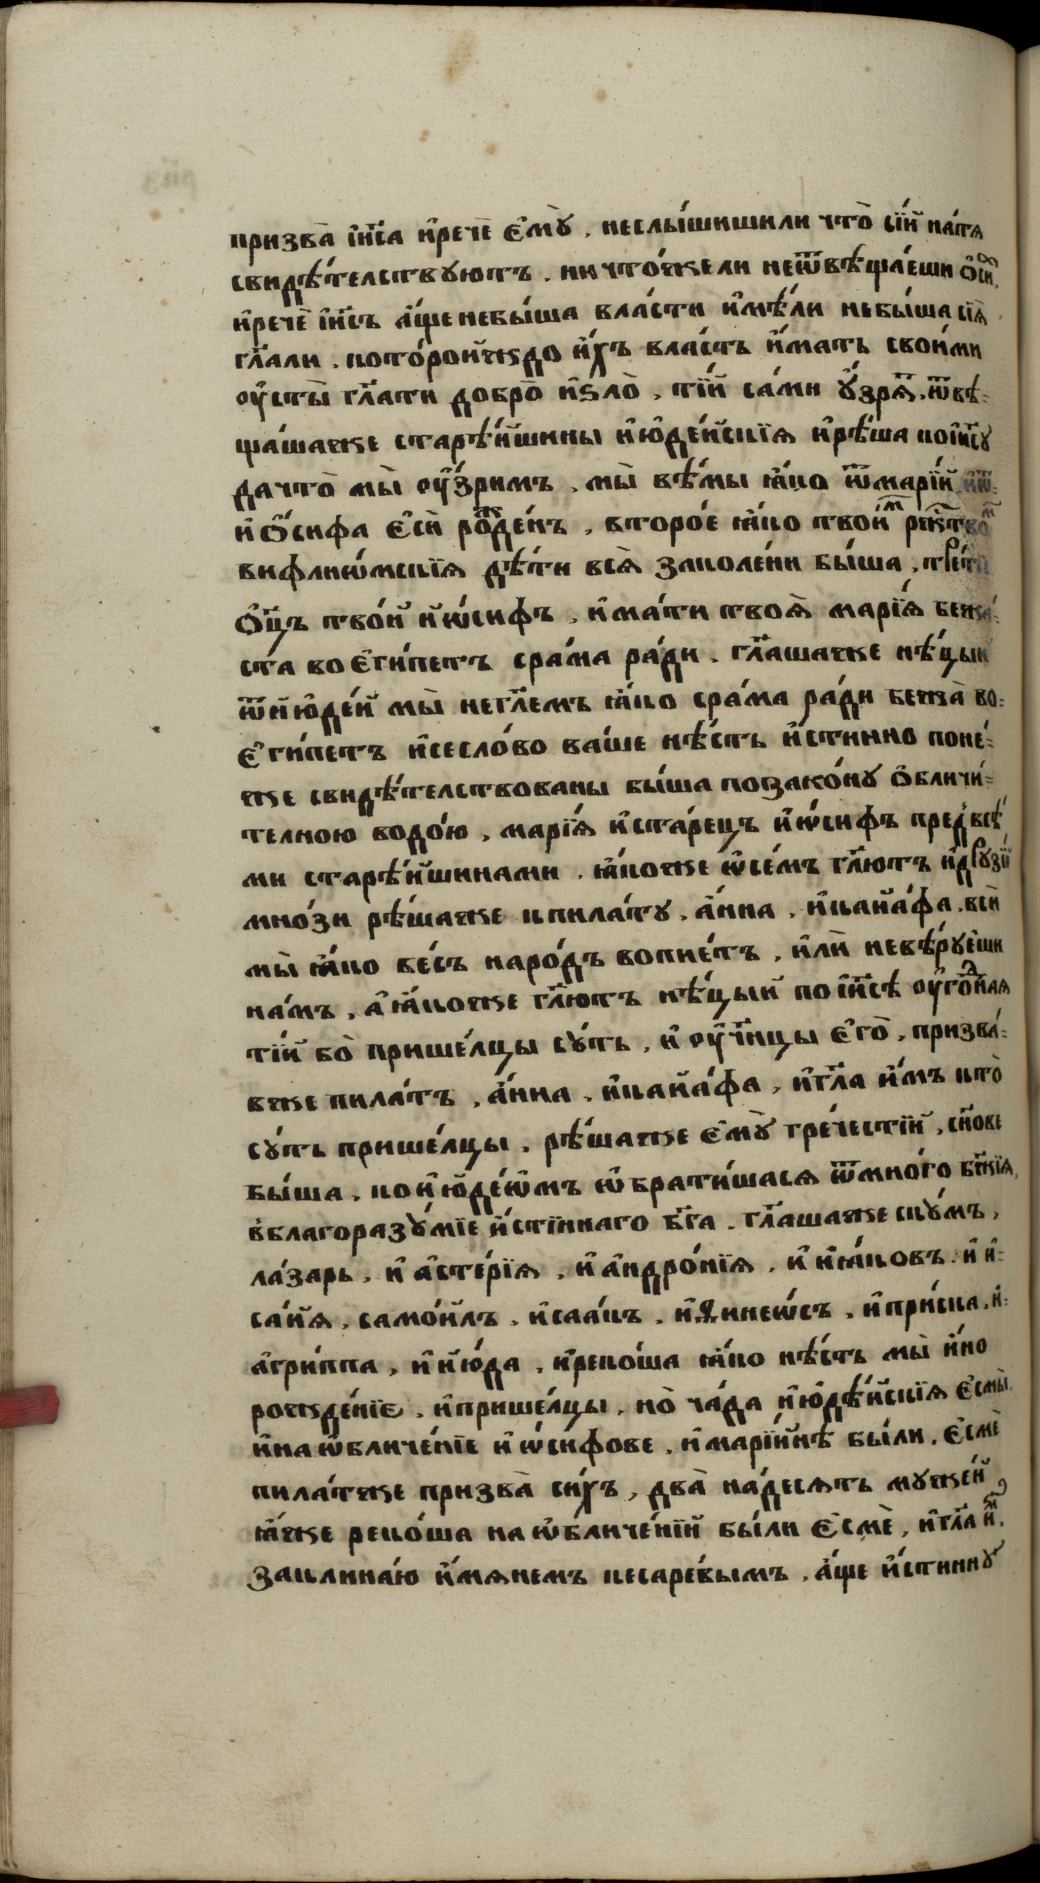 призва̀ і҆и҃са и҆речѐ є҆мꙋ̀ , неслы́шишили что̀ сїи́ на́тѧ
свидѣ́тельствꙋютъ , ничто́жели неѿвѣща́еши
и҆речѐ і҆и҃съ а҆́ще небы́ша вла́сти и҆мѣ́ли небы́ша сїѧ̀
гл҃али . кото́рыйждо и҆́хъ вла́сть и҆́мать свои́ми
оу҆сты̀ гл҃ати добро̀ и҆ѕло̀ , ті́и са́ми ᲂу҆́зрѧт . ѿвѣ-
ща́шаже старѣ́йшины и҆ю҆де́йскїѧ и҆рѣ́ша коі҆и҃сꙋ
дачто̀ мы̀ оу҆́зримъ , мы̀ вѣ́мы ꙗ҆́ко ѿмарі́и
и҆ѻ҆́сифа є҆сѝ рожде́нъ , второ́е ꙗ҆́ко твои́м ржⷭ҇тво́м
вифлиѡ́мскїѧ дѣ́ти всѧ̀ заколе́ни бы́ша , тре́тїе
ѻ҆ц҃ъ тво́й и҆ѡ҆́сифъ , и҆ма́ти твоѧ̀ марі́ѧ бежа́-
ста во є҆ги́петъ сра́ма ра́ди . гл҃ашаже нѣ́цыи
ѿи҆ю҆де́й мы̀ негл҃емъ ꙗ҆́ко сра́ма ра́ди бежа̀ во-
є҆ги́петъ и҆сесло́во ва́ше нѣ́сть и҆́стинно поне́-
же свидѣ́тельствованы бы́ша позако́нꙋ ѻ҆бличи́-
телною водо́ю , марі́ѧ и҆ста́рецъ и҆ѡ҆́сифъ пред̾всѣ́
ми старѣ́йшинами , ꙗ҆́коже ѡ҆се́мъ гл҃ютъ и҆дрꙋзі́и
мно́зи рѣ́шаже кпила́тꙋ , а҆́нна , и҆каїа́фа , всѝ
мы̀ ꙗ҆́ко ве́сь наро́дъ вопїе́тъ , и҆лѝ невѣ́рꙋеши
на́мъ , а҆ ꙗ҆́коже гл҃ютъ нѣ́цыи по і҆и҃сѣ оу҆го́днаѧ
ті́и бо̀ прише́лцы сꙋ́ть , и҆ оу҆ч҃нцы є҆го̀ , призва́-
вже пила́тъ , а҆́нна , и҆каїа́фа , и҆гл҃а и҆́мъ кто̀
сꙋ́ть прише́лцы , рѣ́шаже є҆мꙋ̀ гре́честїи , сн҃ове
бы́ша , кои҆ю҆де́ѡмъ ѡ҆брати́шасѧ ѿмно́го бж҃їѧ ,
в̾благоразꙋ́мїе и҆́стиннаго бг҃а . гл҃ашаже скꙋ́мъ ,
ла́зарь , и҆ а҆сте́рїѧ , и҆ а҆ндро́нїѧ , и҆ и҆ꙗ҆́ковъ и҆ и҆-
са́їѧ , само́илъ , и҆саа́къ , и҆Финеѡ́съ , и҆при́ска , и҆-
а҆гри́ппа , и҆ и҆ю҆́да , и҆реко́ша ꙗ҆́ко нѣ́сть мы̀ и҆́но
рожде́нїе , и҆прише́лцы , но̀ ча́да и҆ю҆дѣ́йскїѧ є҆смы̀
и҆на ѡ҆бличе́нїе и҆ ѡ҆́сифове , и҆марі́инѣ бы́ли , є҆смѐ
пила́тже призва̀ си́хъ , два̀ на́десѧть мꙋже́й
ꙗ҆́же реко́ша на ѡ҆бличе́нїи бы́ли є҆смѐ , и҆гл҃а и҆м .
заклина́ю и҆́мѧнемъ кесаре́вымъ , а҆́ще и҆́стиннꙋ